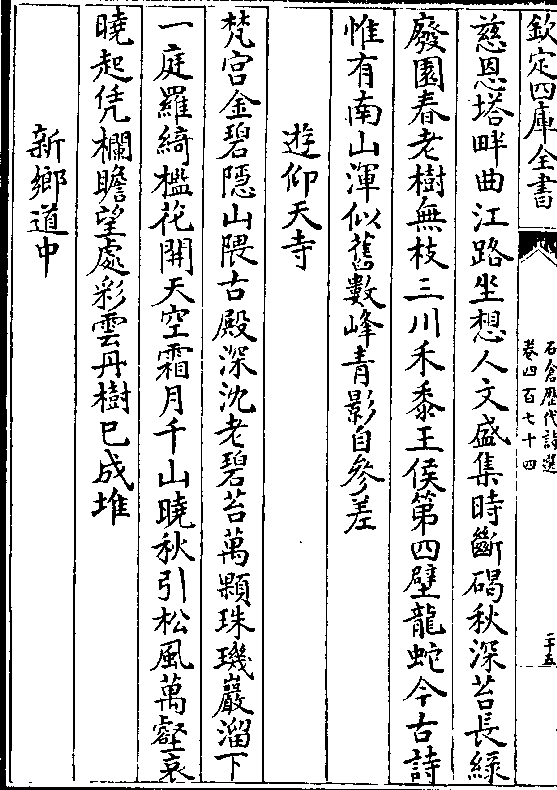 欽定四庫全書
石倉歷代詩選
卷四百七十四
二十五
慈恩塔畔曲江路坐想人文盛集時斷碣秋深苔長緑
廢園春老樹無枝三川禾黍王侯第四壁龍蛇今古詩
惟有南山渾似舊數峰青影自參差
遊仰天寺
梵宫金碧隱山隈古殿深沈老碧苔萬顆珠璣巖溜下
一庭羅綺檻花開天空霜月千山曉秋引松風萬壑哀
曉起凭欄瞻望處彩雲丹樹已成堆
新鄉道中